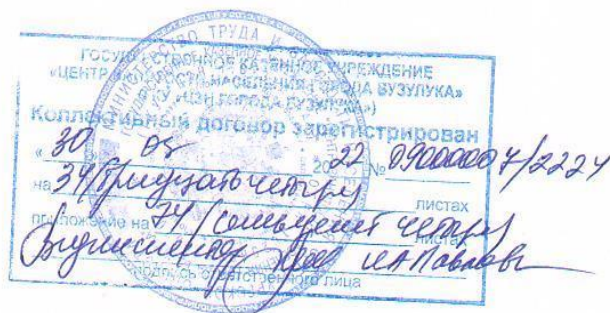 ГОСУДАРСТВЕННОЕ КАЗЕННОЕ УЧРЕЖДЕНИЕ
«ЦЕНТР ЗАНЯТОСТИ НАСЕЛЕНИЯ ГОРОДА БУЗУЛУКА»
«ЦЗН ГОРОДА БУЗУЛУКА»)
Коллективный договор зарегистрирован
«30 » 03 2022 № 09000007/2224
на 34/тридцать четыре листах
приложение на 74/семьдесят четыре листах
И.А Павлова
подпись ответственного лица